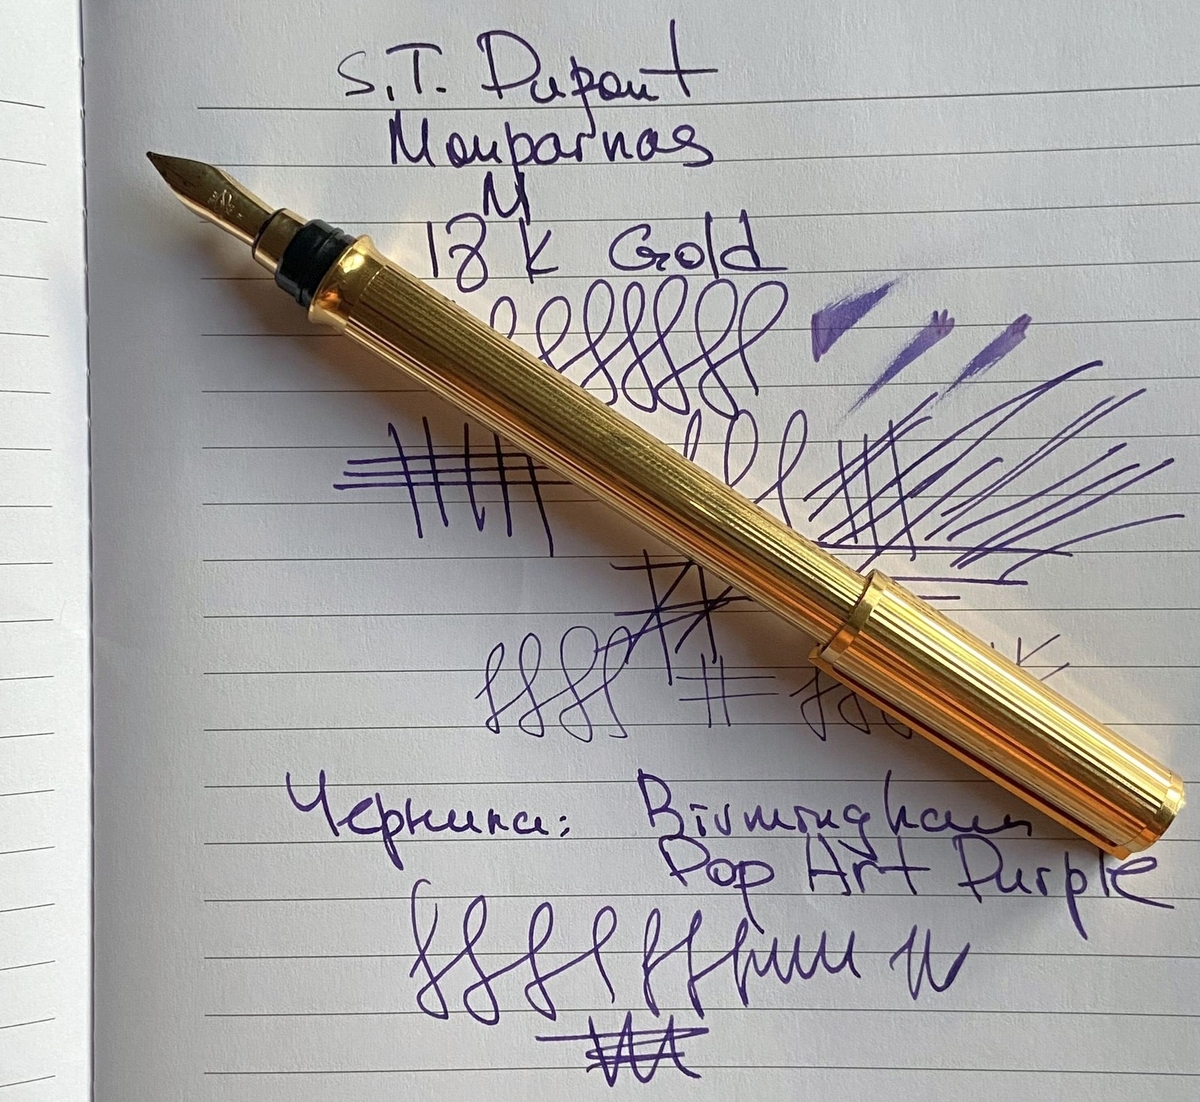 S.T. Dupont
Monparnas
M
18 k Gold
Чернила: Birmingham
Pop Art Purple